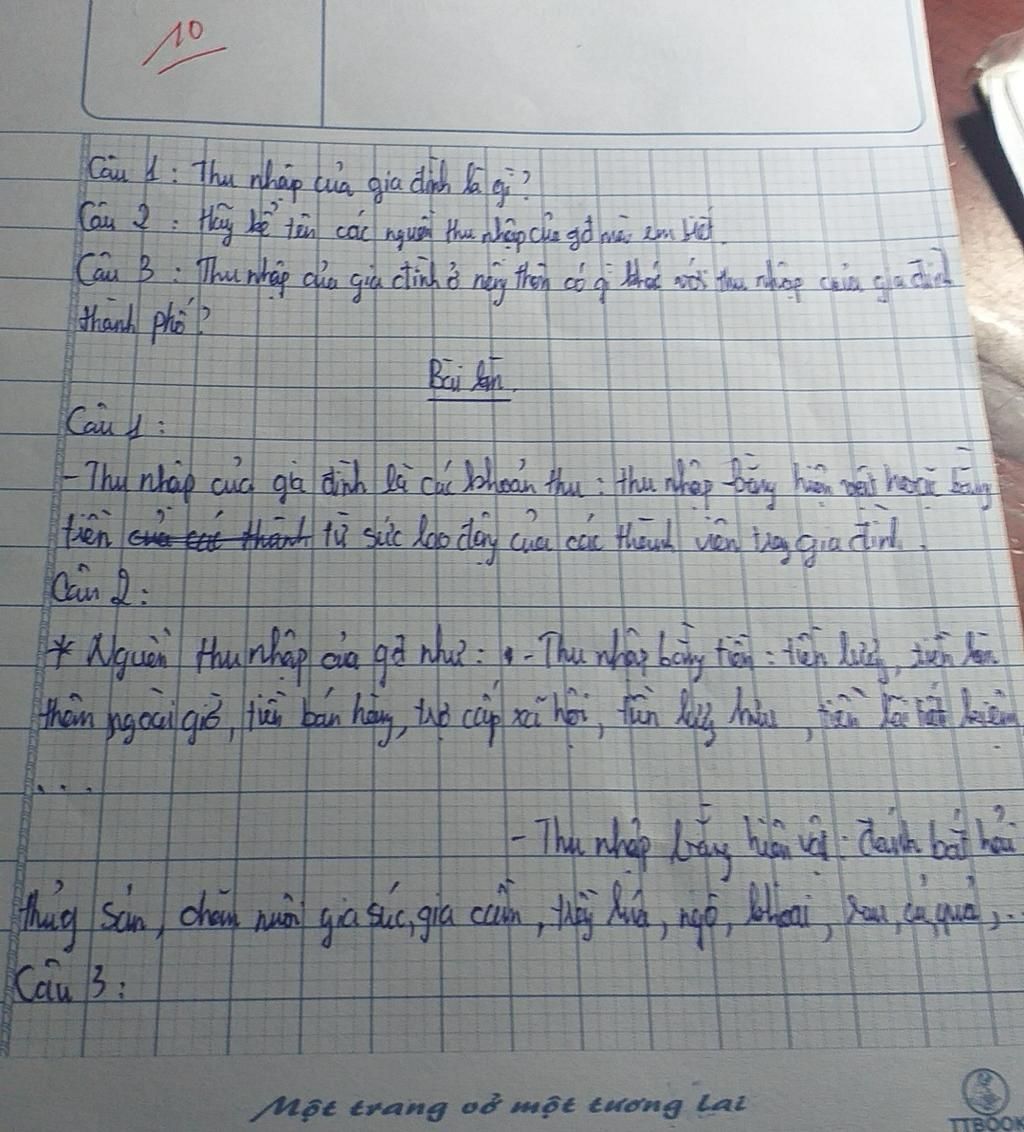 10
Câu 1 : Thu nhập của gia đình là gì?
Câu 2 : Hãy kể tên các nguồn thu nhập của gđ mà em biết.
Câu 3 : Thu nhập của gia đình ở nông thôn có gì khác với thu nhập của gia đình
thành phố?
Bài làm
Câu 1 :
- Thu nhập của gia đình là các khoản thu : thu nhập bằng hiện vật hoặc bằng
tiền của các thành từ sức lao động của các thành viên trong gia đình.
Câu 2 :
* Nguồn thu nhập của gđ như : - Thu nhập bằng tiền : tiền lương, tiền làm
thêm ngoài giờ, tiền bán hàng, trợ cấp xã hội, tiền lương hưu, tiền lãi tiết kiệm
...
- Thu nhập bằng hiện vật : đánh bắt hải
thủy sản, chăn nuôi gia súc, gia cầm, trồng lúa, ngô, khoai, rau, củ, quả, ...
Câu 3 :
Một trang vở một tương lai
TTBOOK